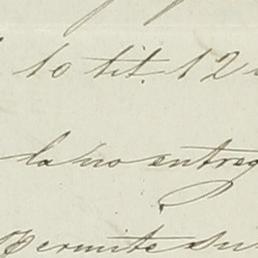 10 tit. 12
la no entreg
Permite su